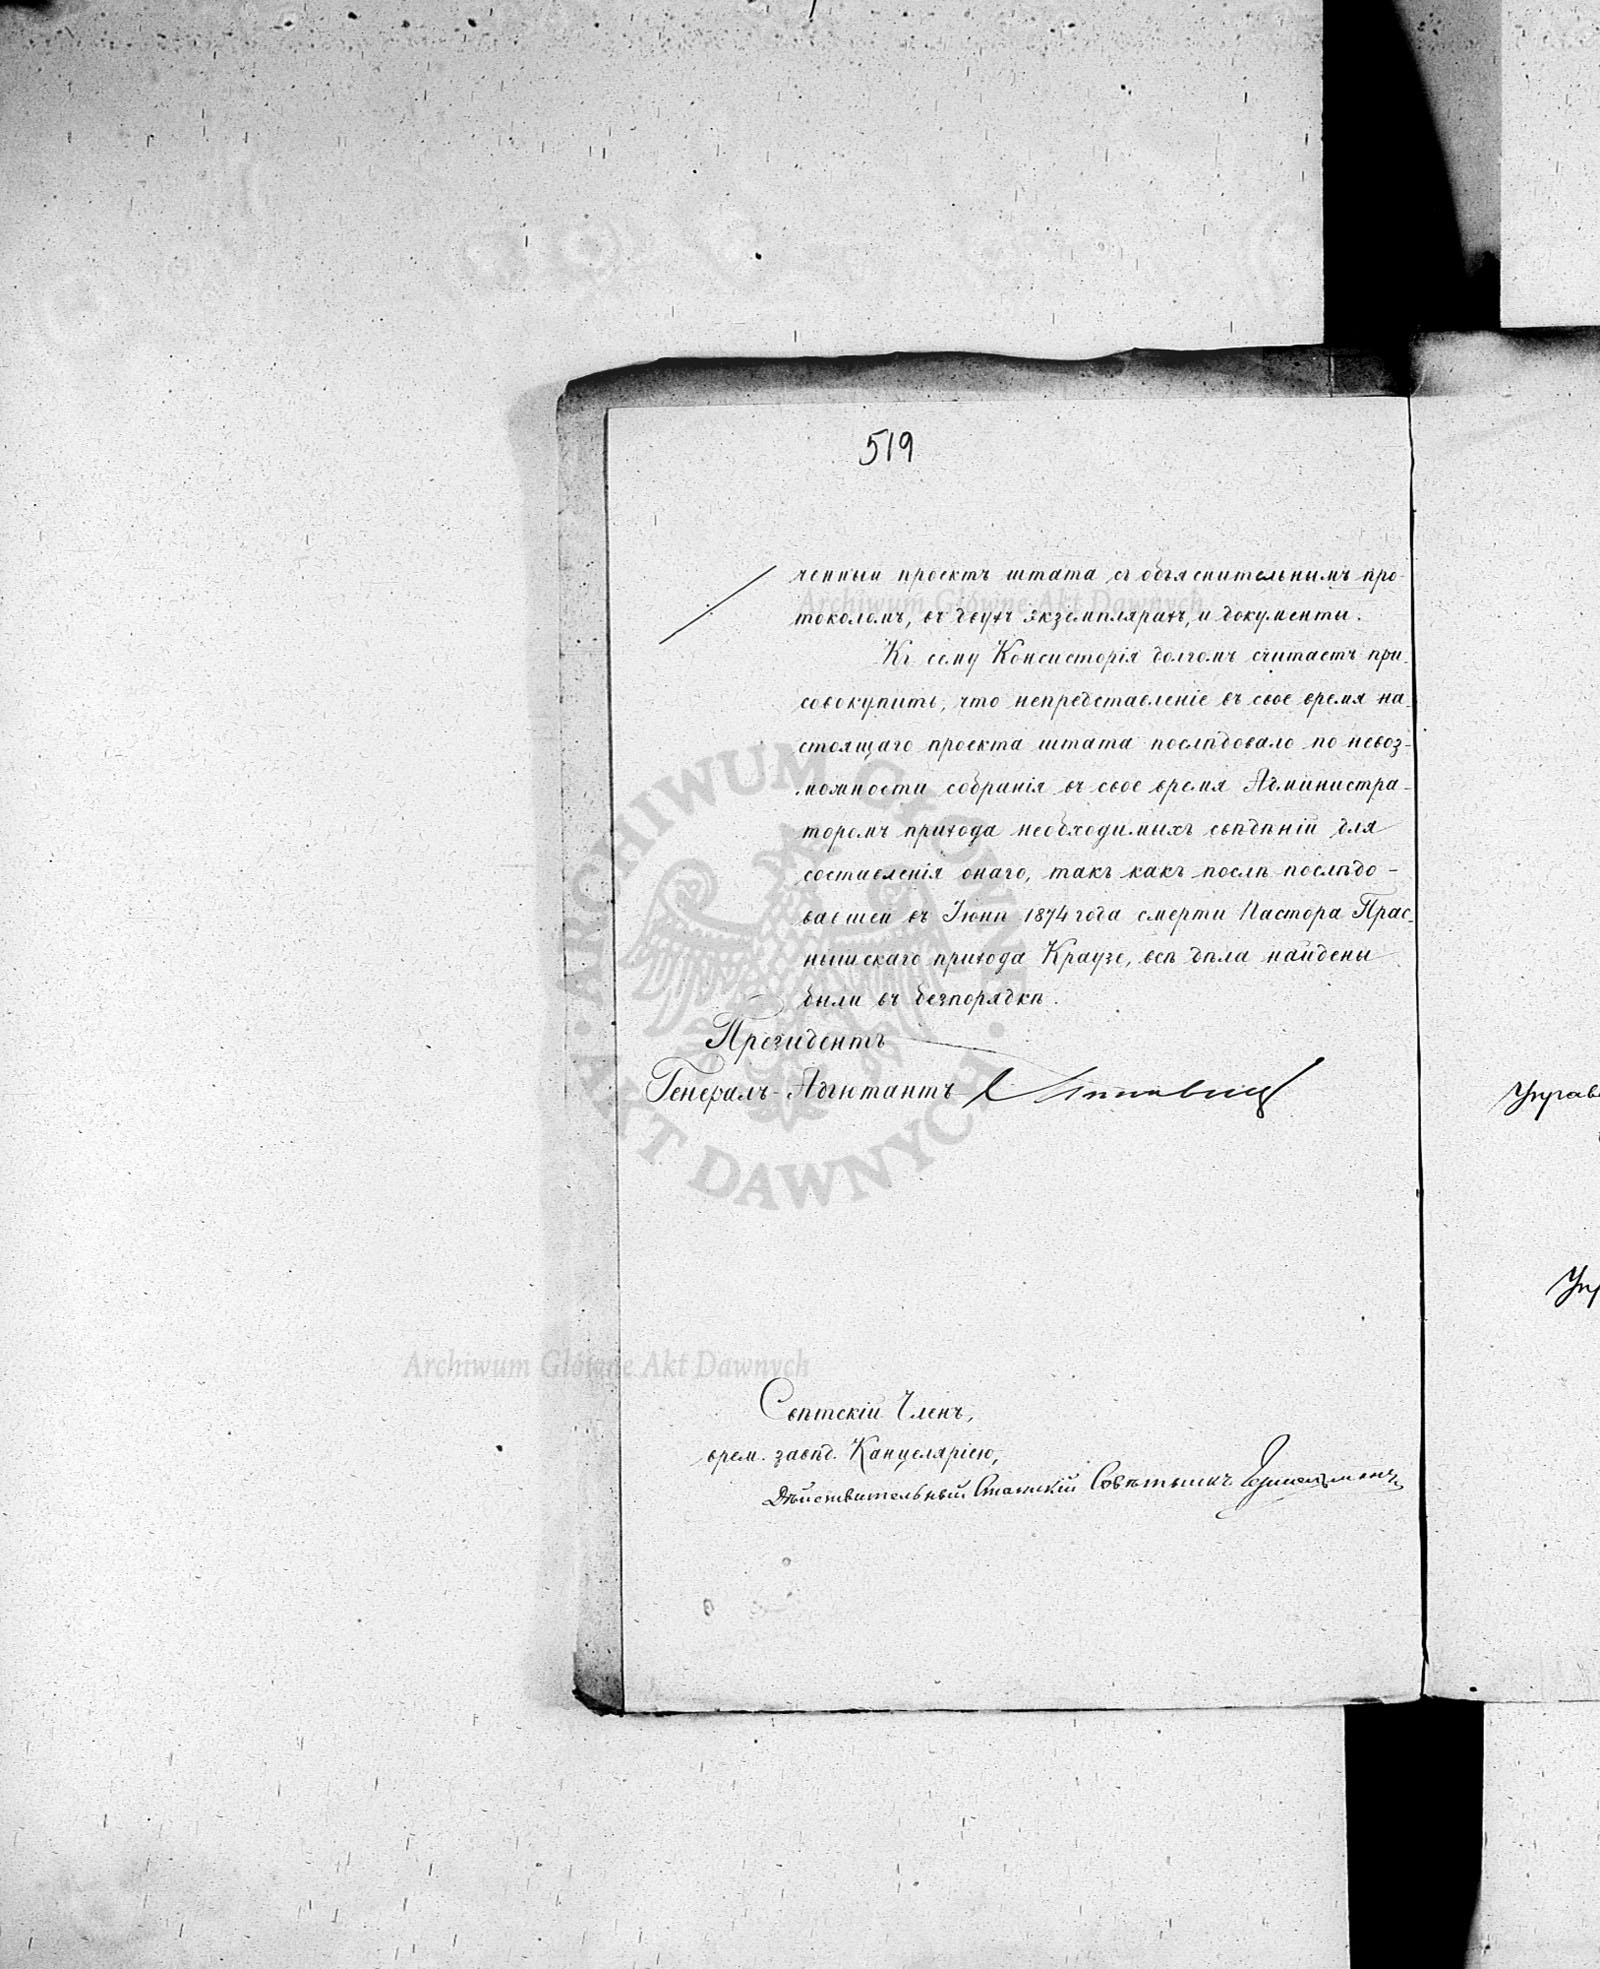 519
ченный проектъ штата съ объяснительнымъ про-
токоломъ, въ двухъ экземплярахъ, и документы.
Къ сему Консисторія долгомъ считаетъ при-
совокупить, что непредставленіе въ свое время на-
стоящаго проекта штата послѣдовало по невоз-
можности собранія въ свое время Администра-
торомъ прихода необходимыхъ свѣдѣній для
составленія онаго, такъ какъ послѣ послѣдо-
вавшей въ Іюнѣ 1874 года смерти Пастора Прас-
нышскаго прихода Краузе, всѣ дѣла найдены
были въ безпорядкѣ.
Президентъ
Генералъ-Адъютантъ
Свѣтскій Членъ,
врем. завѣд. Канцеляріею,
Дѣйствительный Статскій Совѣтникъ
Archiwum Główne Akt Dawnych
Archiwum Główne Akt Dawnych
ARCHIWUM GŁÓWNE AKT DAWNYCH